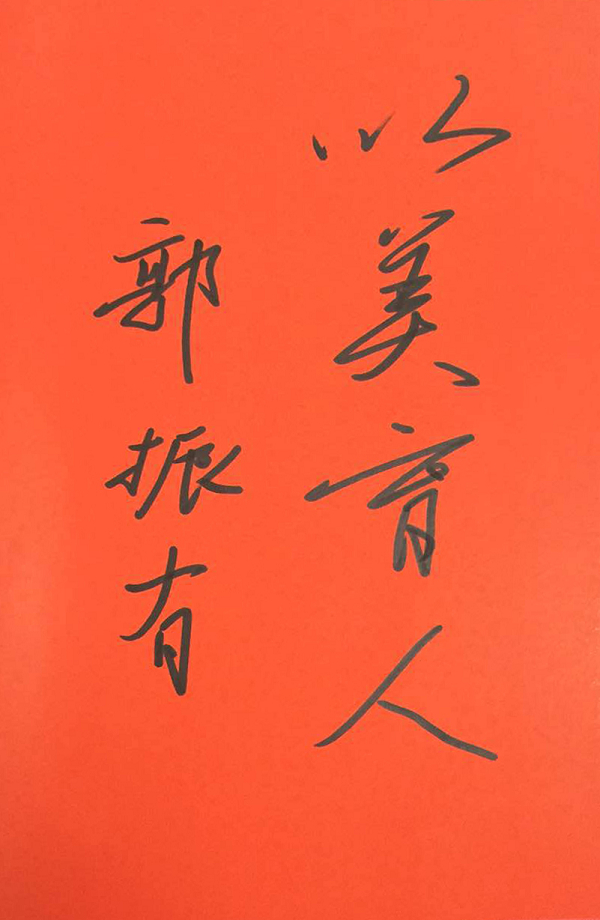 以美育人
郭振有